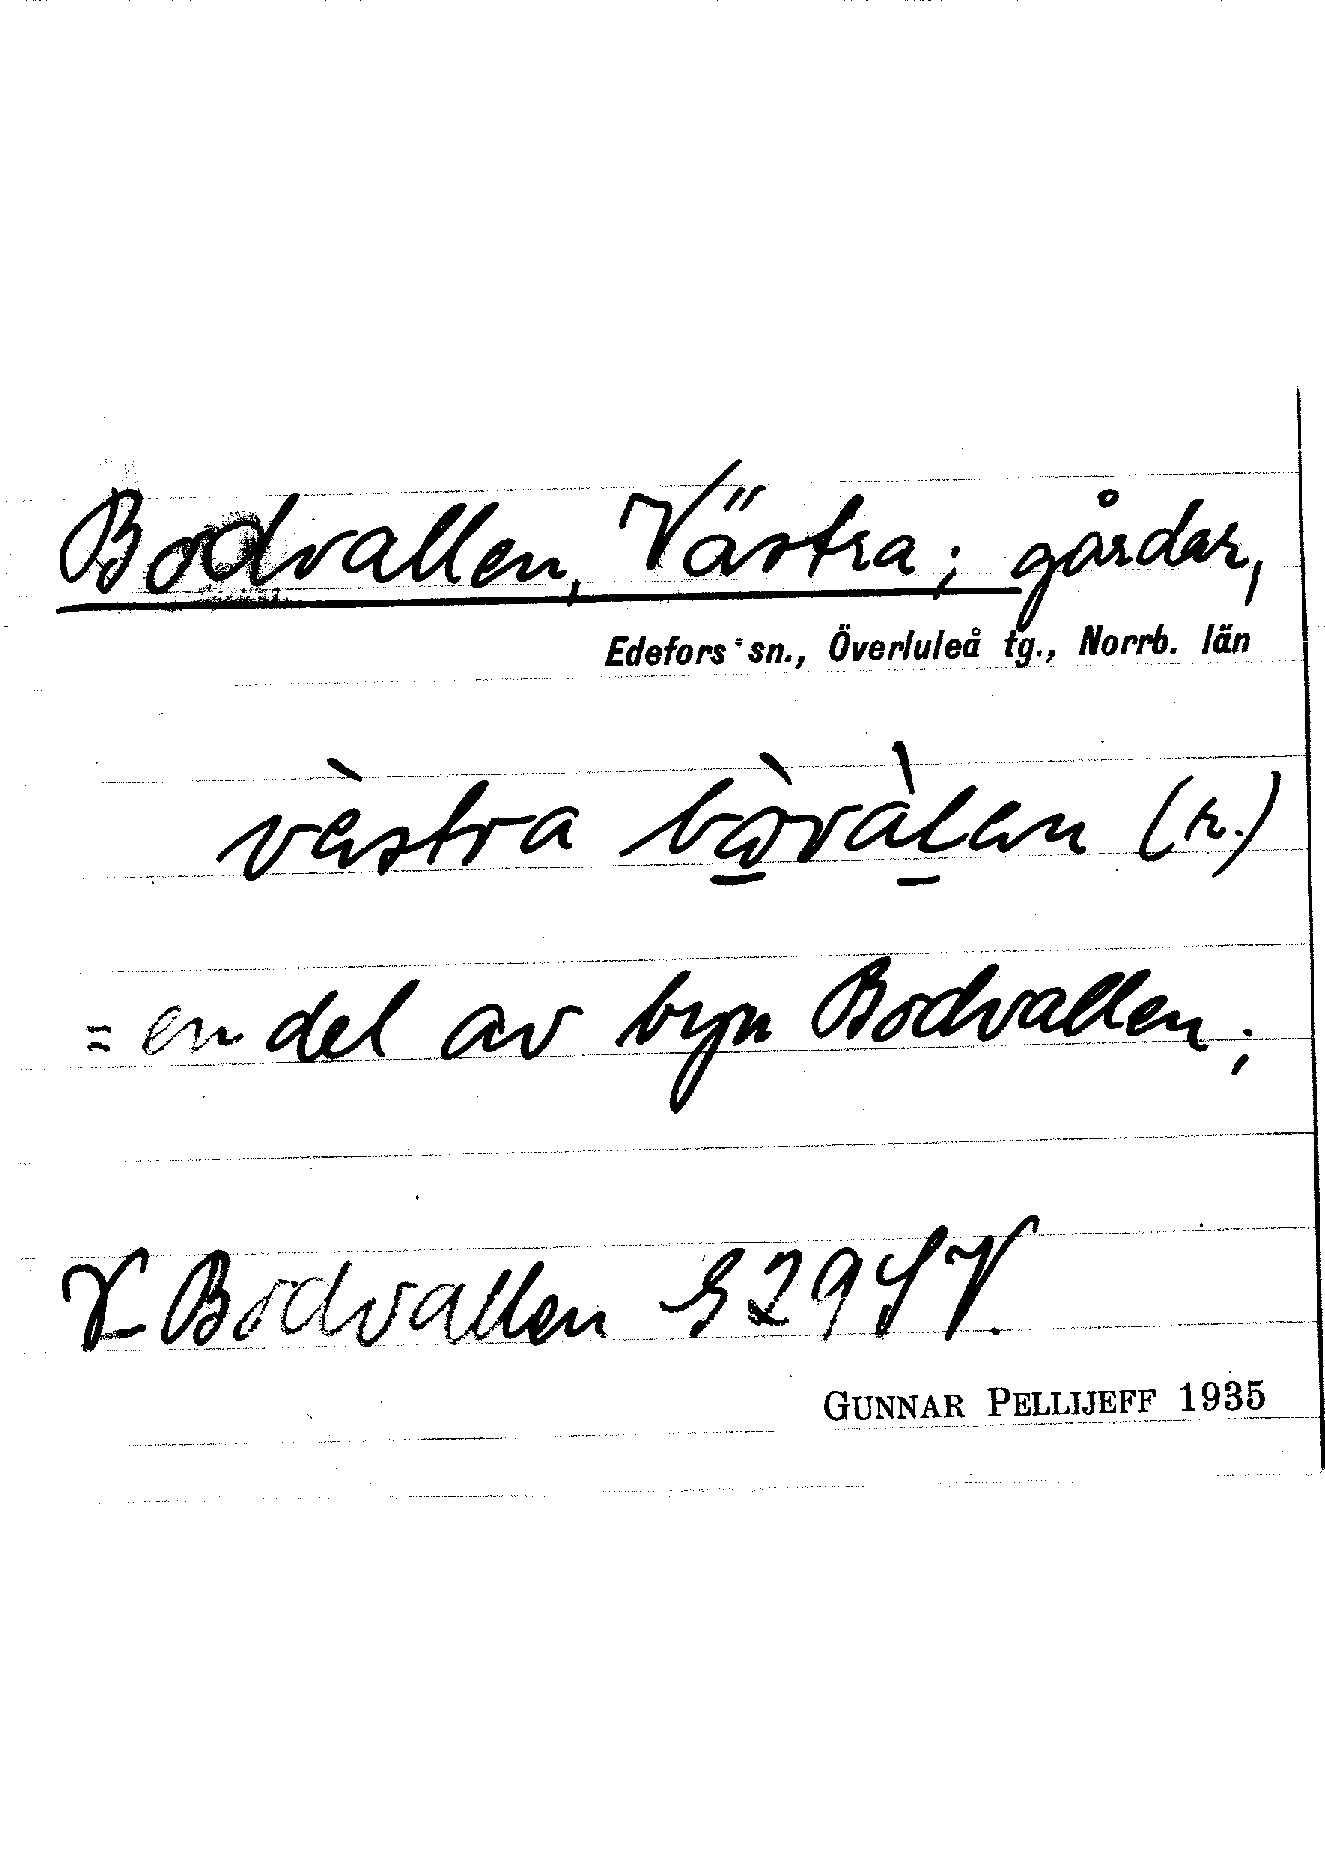 Bodvallen, Västra; gårdar,
Edefors sn., Överluleå tg., Norrb. län
= en del av byn Bodvallen;
V. Bodvallen S29SV.
GUNNAR PELLIJEFF 1935